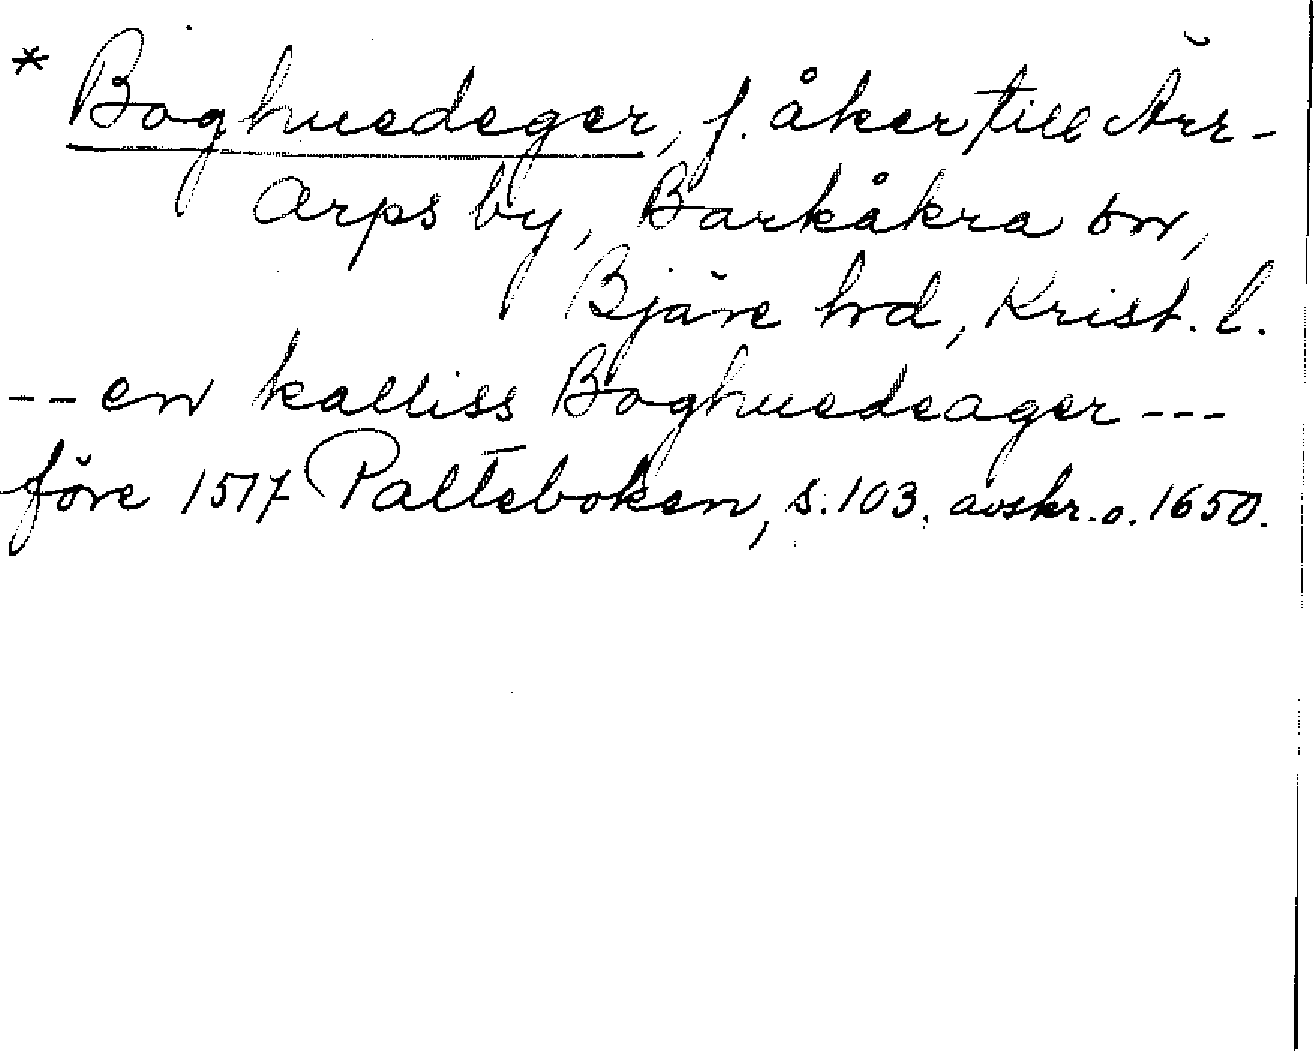 * Boghuedeger, f. åker till Ärr-
arps by, Barkåkra sn,
Bjäre hd, Krist. l.
-- en kalliss Boghuedeager ---
före 1517 Palteboken, s. 103. avskr. o. 1650.